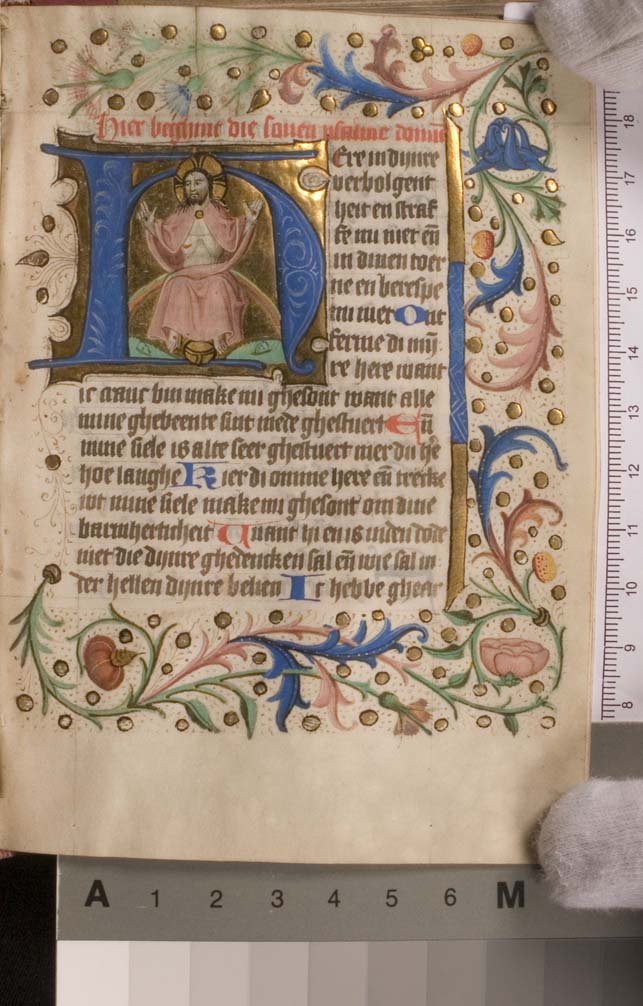 Hier beghint die seuen psalme domin
HEre in dijnre
verbolgent
heit en straf
fe mi niet en̄
in dinen toer
ne en berespe
mi niet Ont
ferme di mij
re here want
ic cranc bin make mi ghesont want alle
mine ghebeente sint mede ghestuert En̄
mine siele is alte seer ghestuert mer du he͞
hoe langhe Kier di omme here en̄ trecke
wt mine siele make mi ghesont om dine
barmherticheit Want hi en is inden dode
niet die dijnre ghedencken sal en̄ wie sal in
der hellen dijnre belien Ic hebbe ghear
18
17
16
15
14
13
12
11
10
9
8
A 1 2 3 4 5 6 M